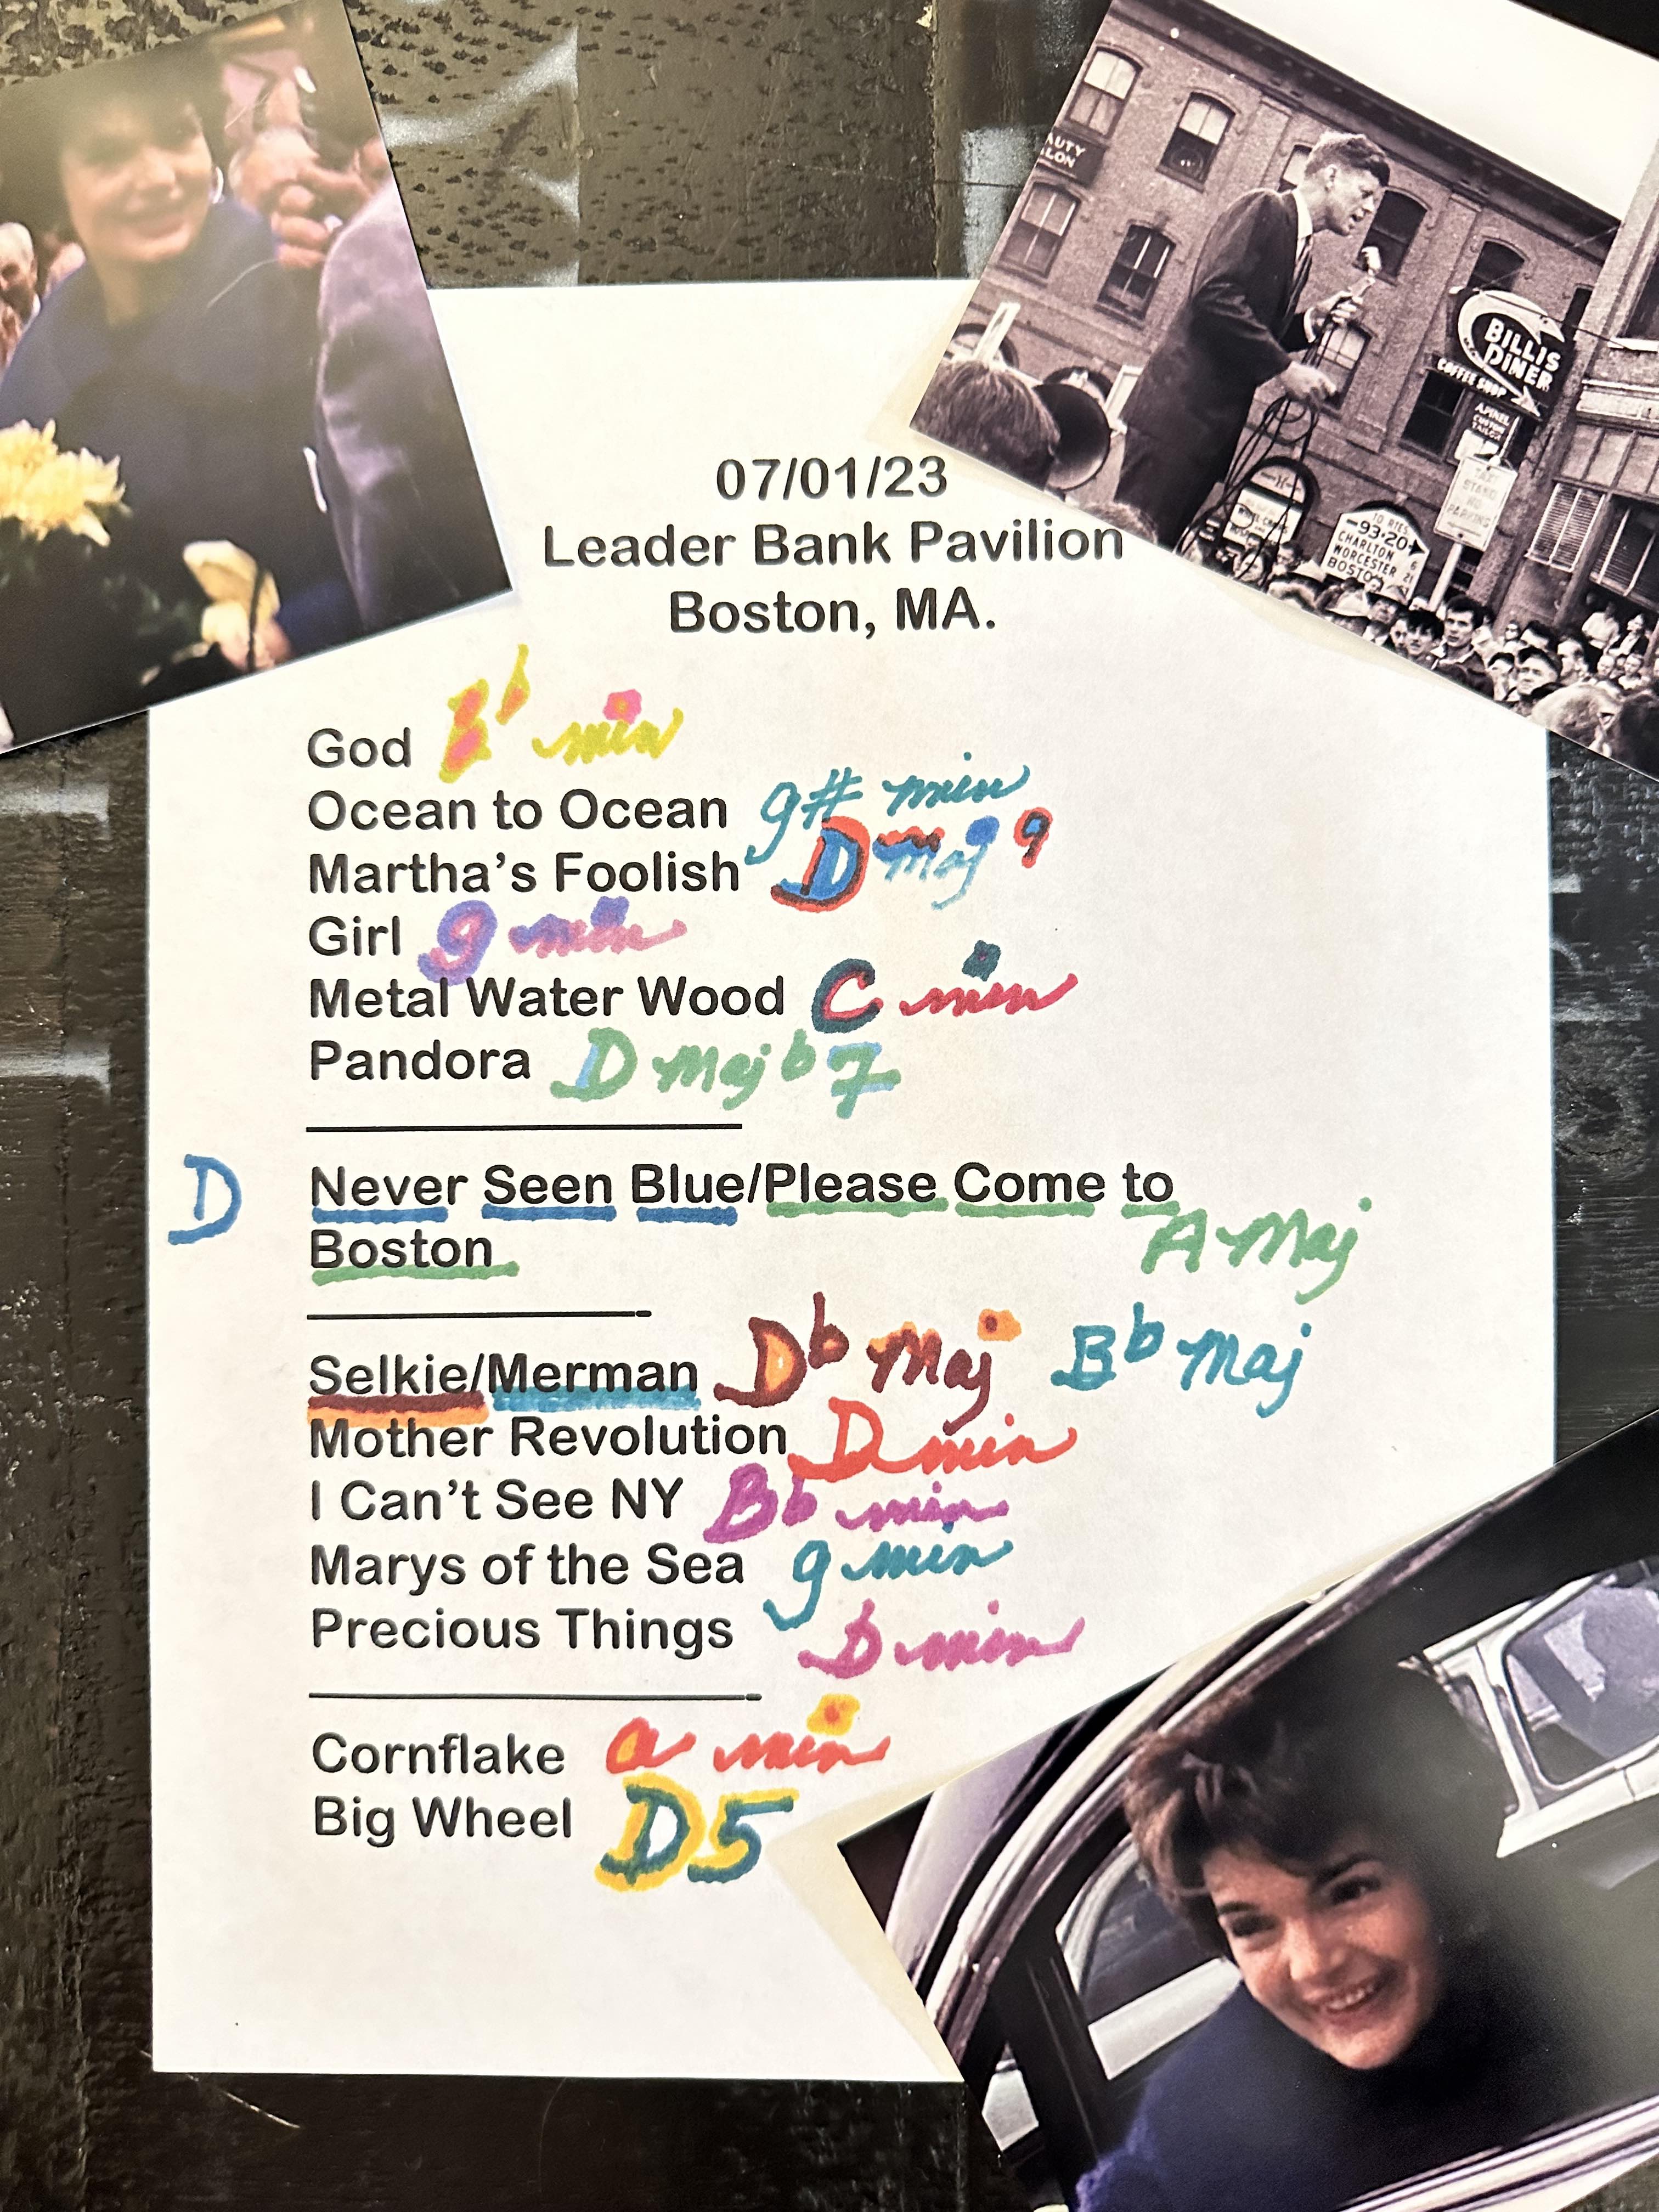 AUTY
LON
BILLIS
DINER
COFFEE SHOP
TAXI
STAND
NO
PARKING
TO RTES
93·20
CHARLTON 6
WORCESTER
BOSTON
07/01/23
Leader Bank Pavilion
Boston, MA.
God min
Ocean to Ocean g# min
Martha's Foolish D maj 9
Girl g min
Metal Water Wood C min
Pandora D Maj b7
D Never Seen Blue/Please Come to
Boston A Maj
Selkie/Merman Db Maj Bb Maj
Mother Revolution D min
I Can't See NY Bb min
Marys of the Sea g min
Precious Things b min
Cornflake a min
Big Wheel D5